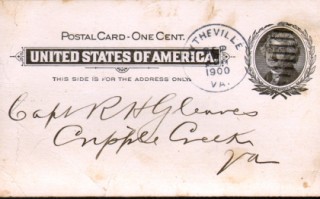 POSTAL CARD - ONE CENT.
UNITED STATES OF AMERICA.
THIS SIDE IS FOR THE ADDRESS ONLY.
THEVILLE
1900
VA.
Capt R H Gleaves
Cripple Creek
Va